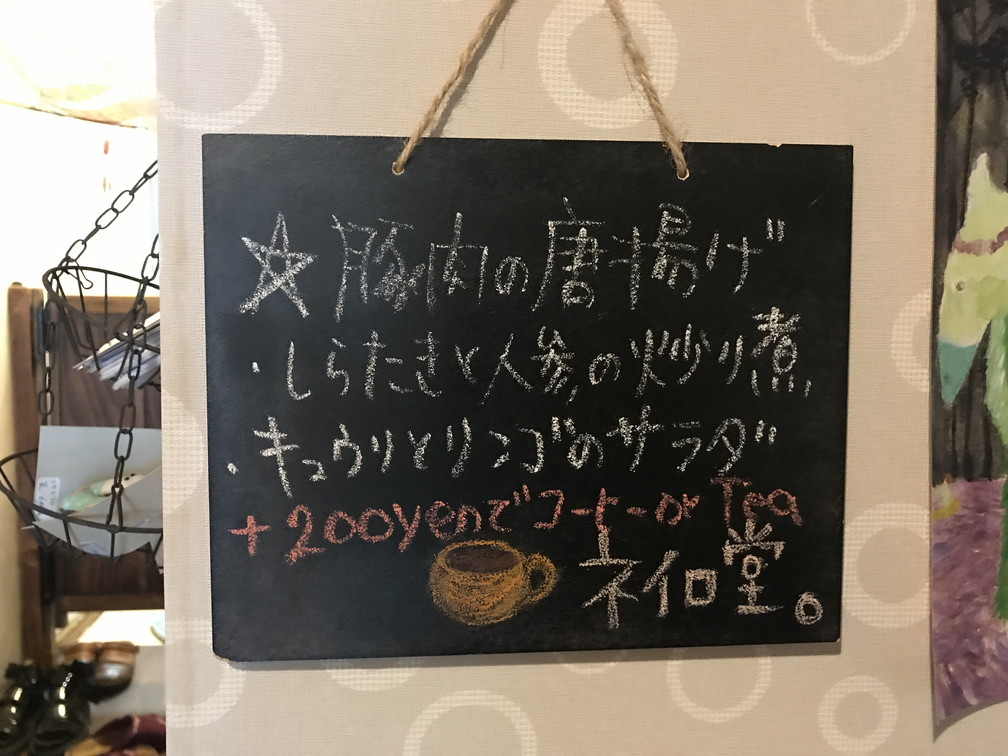 ☆豚肉の唐揚げ
・しらたきと人参の炒り煮
・キュウリとリンゴのサラダ
+200yenでコーヒーor Tea
ネイロ堂。